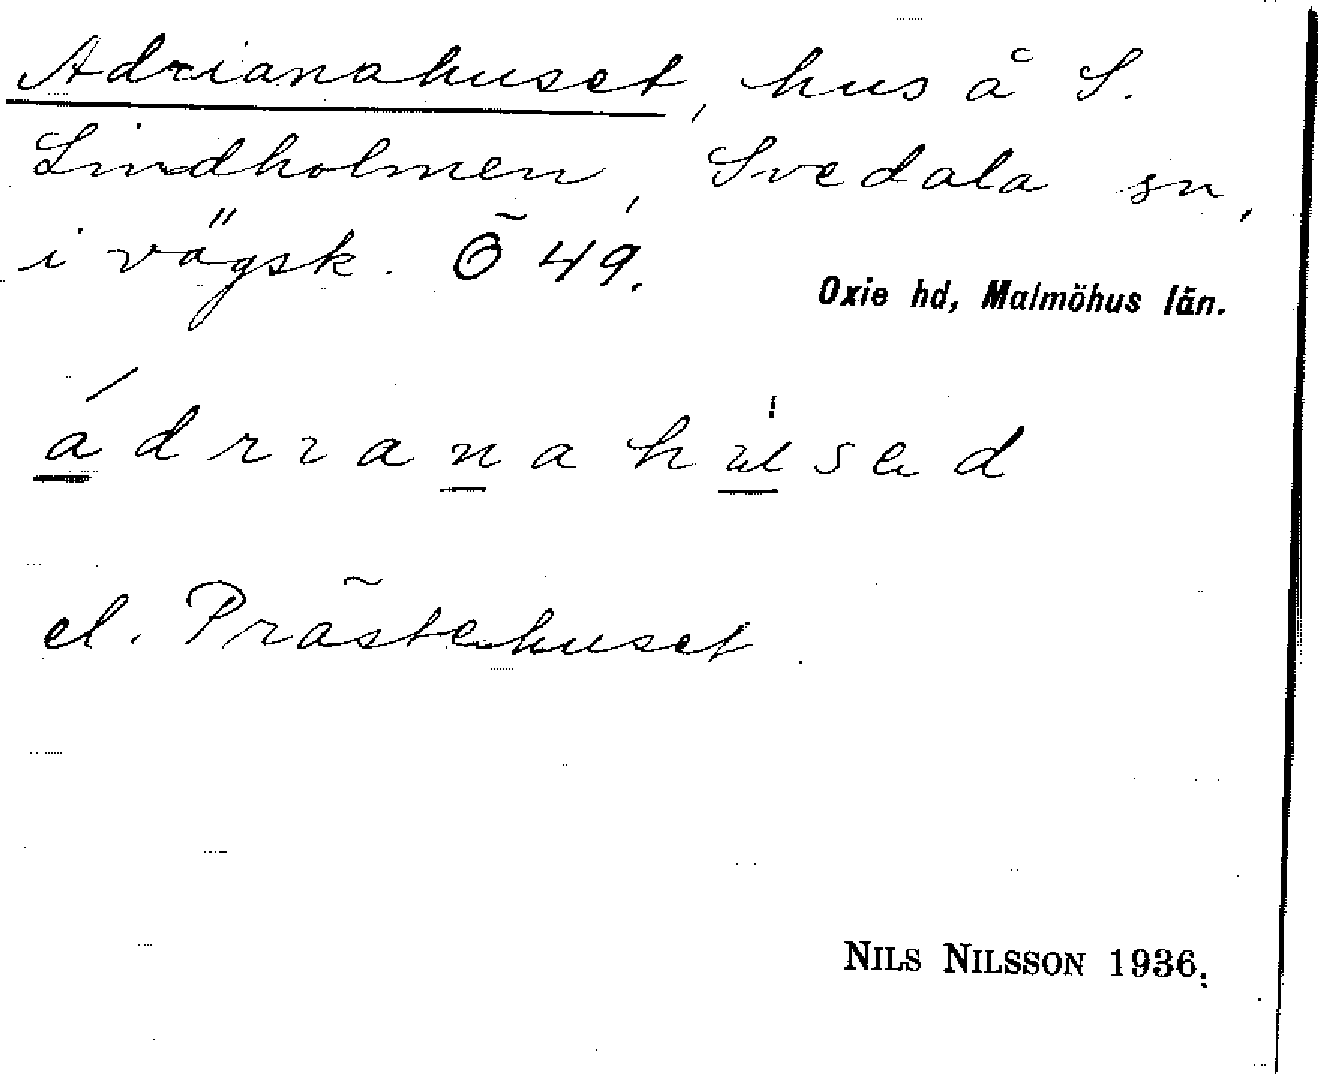 Adrianahuset, hus å S.
Lindholmen, Svedala sn,
i vägsk. Ö 49.
Oxie hd, Malmöhus län.
ádrianahúsed
el. Prästehuset.
NILS NILSSON 1936.